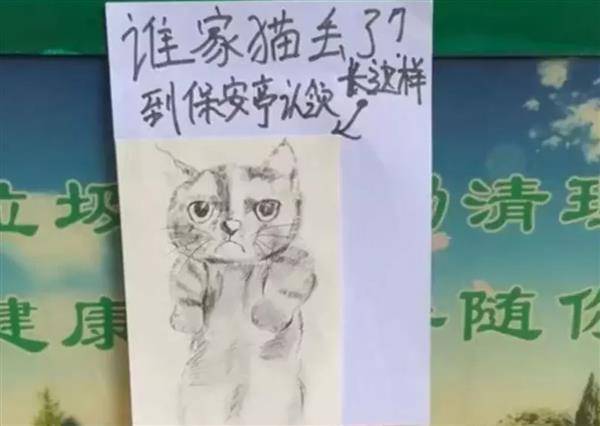 谁家猫丢了?
到保安亭认领
长这样
垃圾
清理
健康
随你